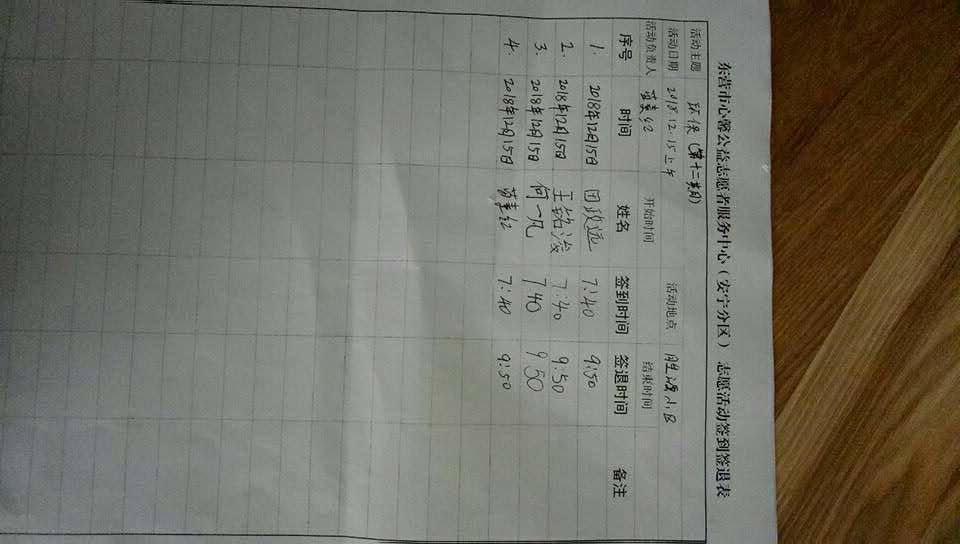 东营市心馨公益志愿者服务中心（安宁分区）志愿活动签到签退表
活动主题 环保（第十二期）
活动日期 2018.12.15上午 活动地点
活动负责人 开始时间 结束时间
序号 时间 姓名 签到时间 签退时间 备注
1. 2018年12月15日 田政远 7:40 9:50
2. 2018年12月15日 王铭浚 7:40 9:50
3. 2018年12月15日 何一凡 7 40 9 50
4. 2018年12月15日 7:40 9:50